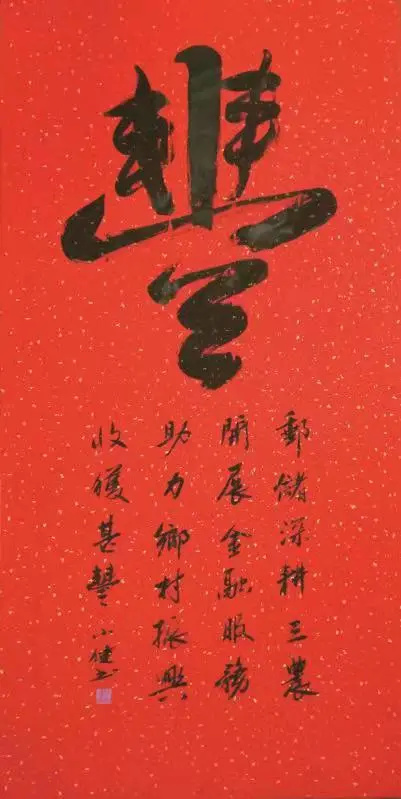 豐
郵儲深耕三農
開展金融服務
助力鄉村振興
收獲甚豐 小健書